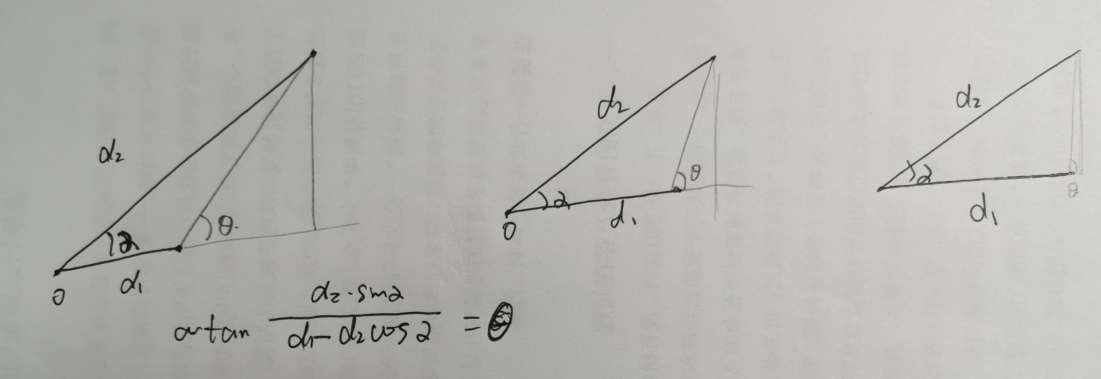 d₂
α
θ
O
d₁
d₂
α
θ
O
d₁
d₂
α
θ
d₁
artan d₂·sinα / d₁-d₂cosα = θ